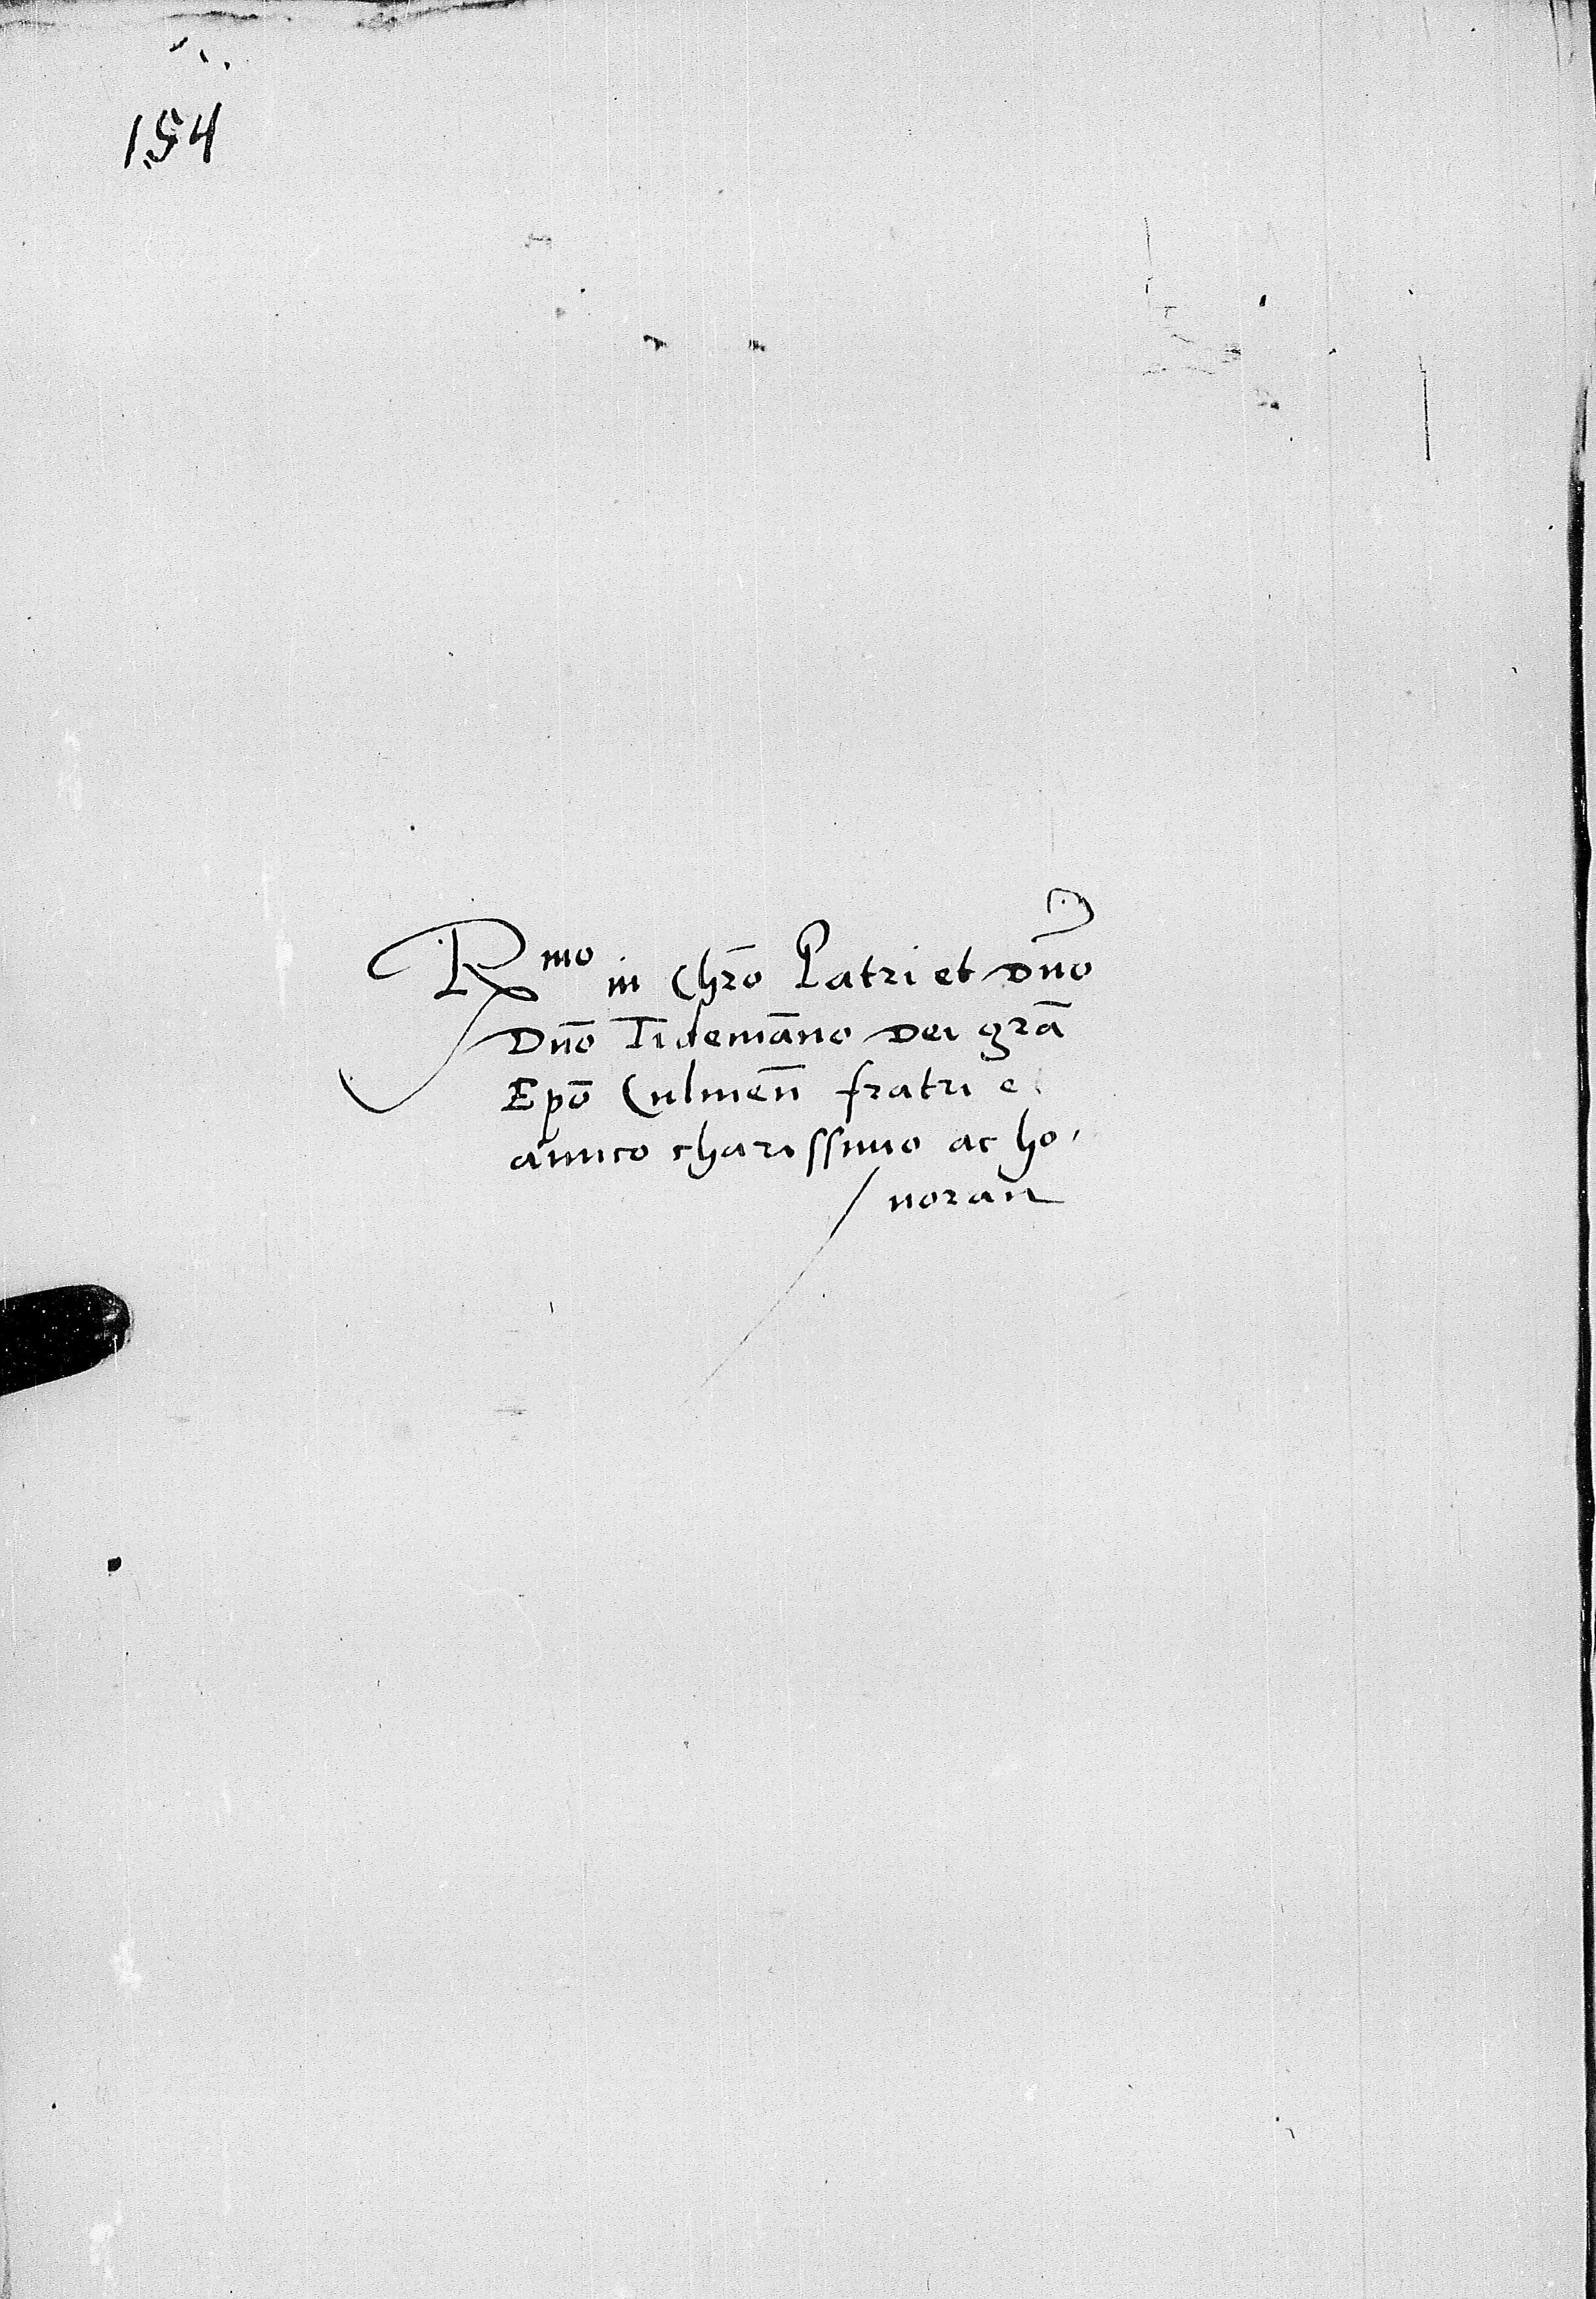 154
Rmo in Chr̄o Patri et Dn̄o
Dn̄o Tidemāno Dei gr̄a
Ep̄o Culmen̄ fratri e
amico charissimo ac ho,
noran